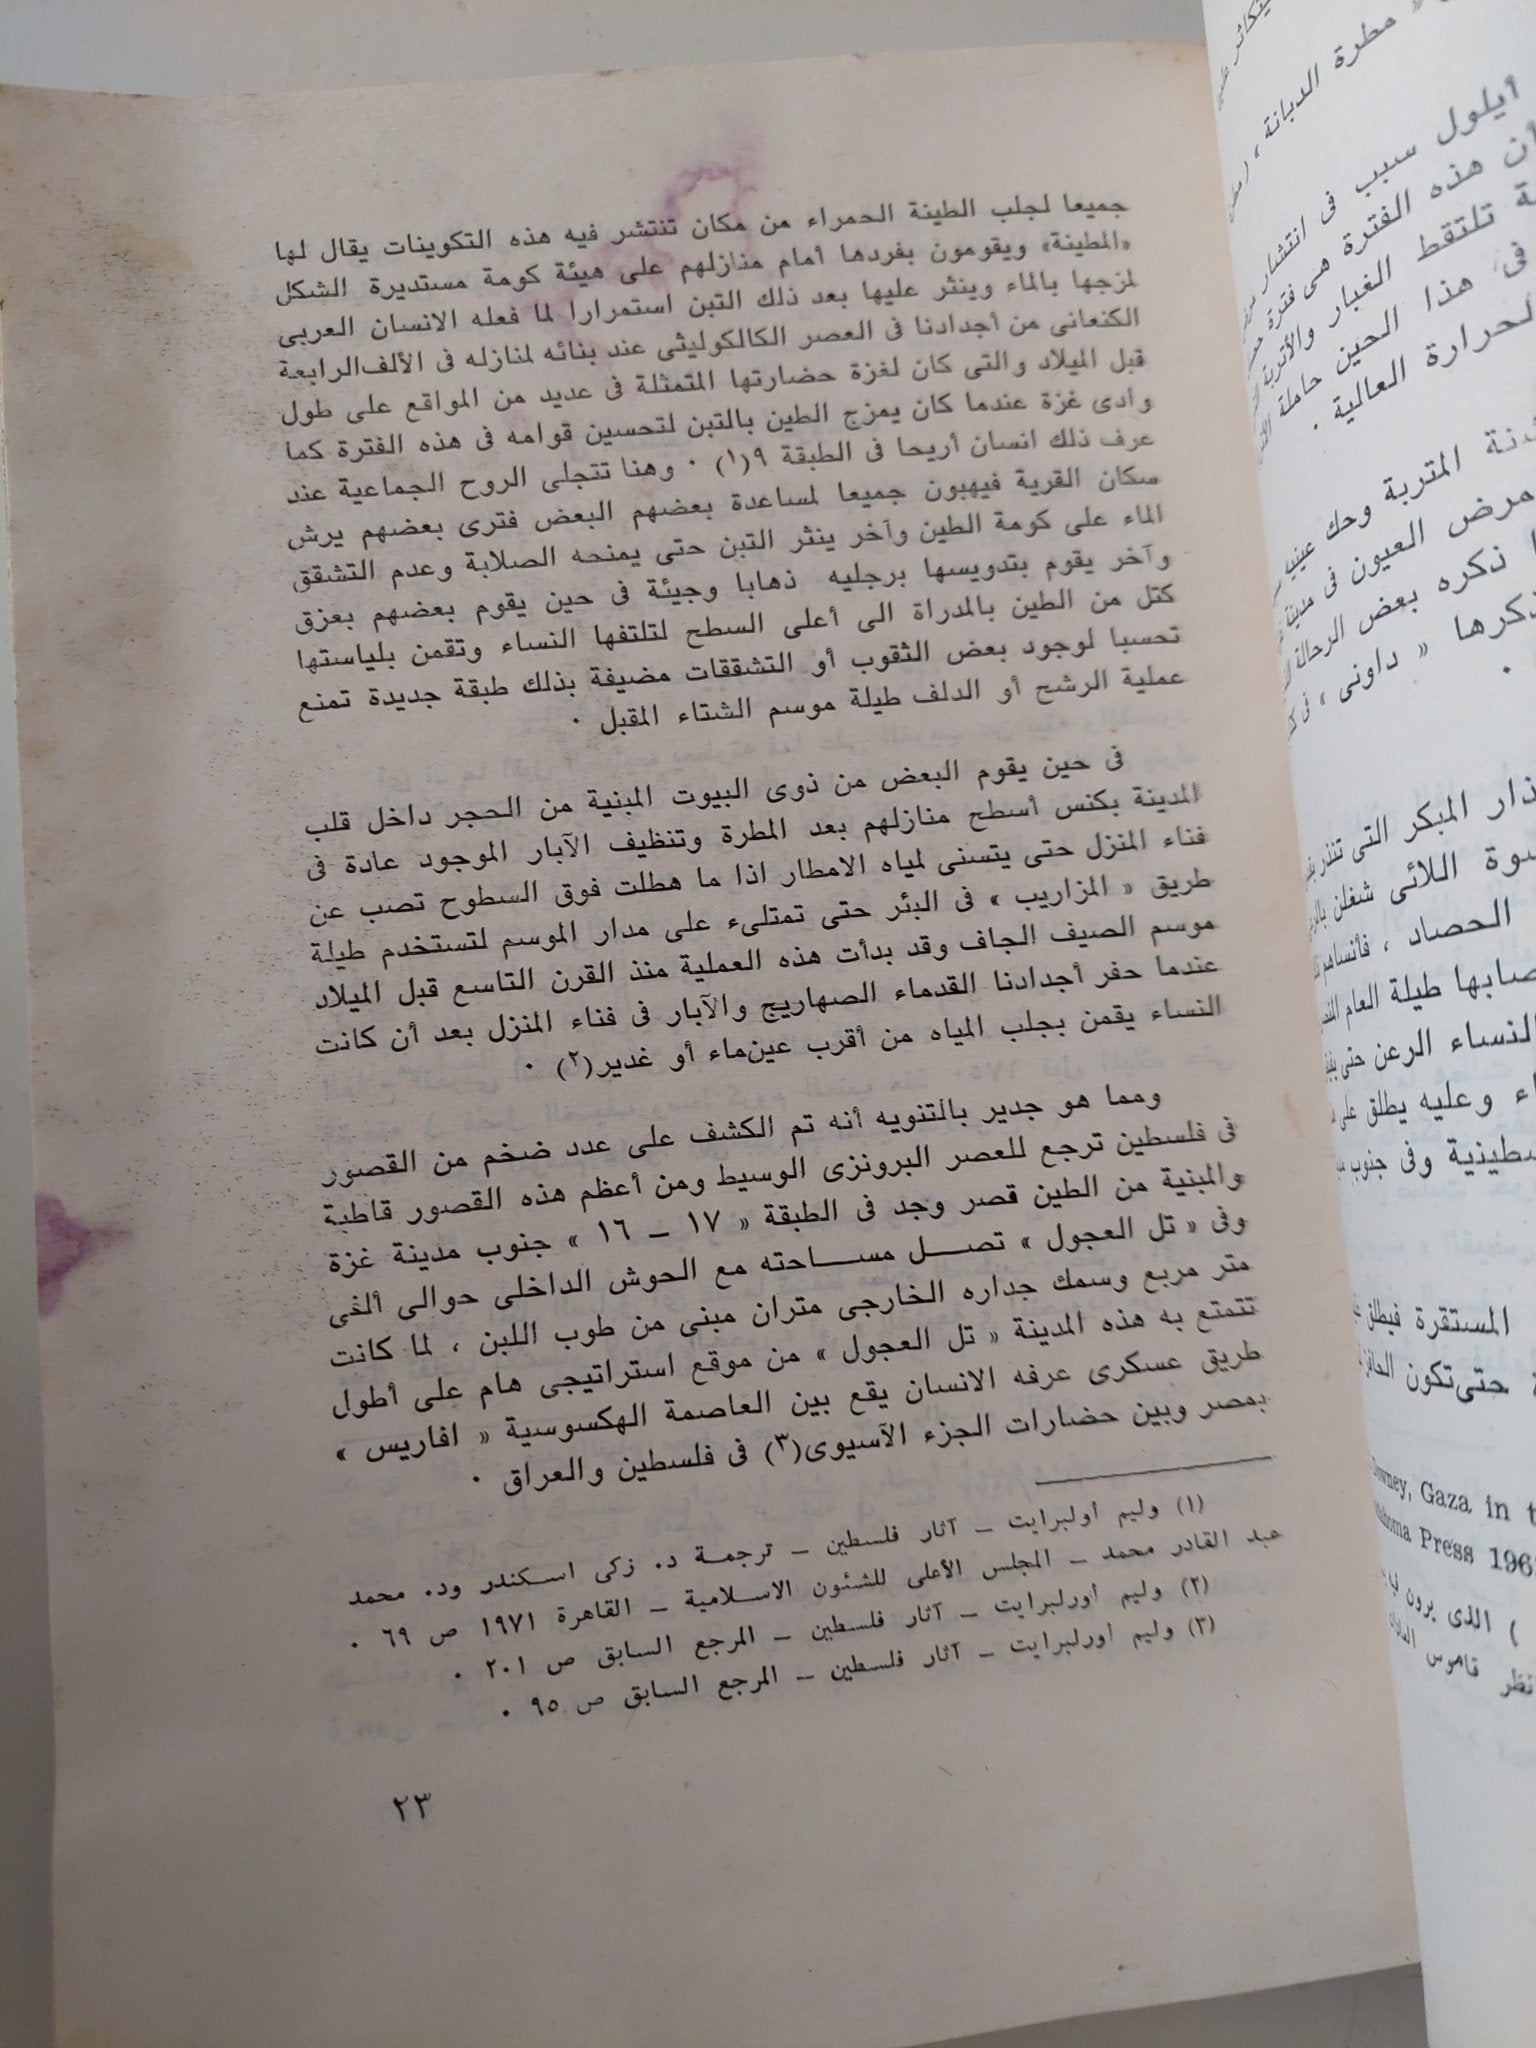 جميعا لجلب الطينة الحمراء من مكان تنتشر فيه هذه التكوينات يقال لها
«المطينة» ويقومون بفردها أمام منازلهم على هيئة كومة مستديرة الشكل
لمزجها بالماء وينثر عليها بعد ذلك التبن استمرارا لما فعله الانسان العربى
الكنعانى من أجدادنا فى العصر الكالكوليثى عند بنائه لمنازله فى الألف الرابعة
قبل الميلاد والتى كان لغزة حضارتها المتمثلة فى عديد من المواقع على طول
وأدى غزة عندما كان يمزج الطين بالتبن لتحسين قوامه فى هذه الفترة كما
عرف ذلك انسان أريحا فى الطبقة ٩(١) ٠ وهنا تتجلى الروح الجماعية عند
سكان القرية فيهبون جميعا لمساعدة بعضهم البعض فترى بعضهم يرش
الماء على كومة الطين وآخر ينثر التبن حتى يمنحه الصلابة وعدم التشقق
وآخر يقوم بتدويسها برجليه ذهابا وجيئة فى حين يقوم بعضهم بعزق
كتل من الطين بالمدراة الى أعلى السطح لتلتفها النساء وتقمن بلياستها
تحسبا لوجود بعض الثقوب أو التشققات مضيفة بذلك طبقة جديدة تمنع
عملية الرشح أو الدلف طيلة موسم الشتاء المقبل ٠
فى حين يقوم البعض من ذوى البيوت المبنية من الحجر داخل قلب
المدينة بكنس أسطح منازلهم بعد المطرة وتنظيف الآبار الموجود عادة فى
فناء المنزل حتى يتسنى لمياه الامطار اذا ما هطلت فوق السطوح تصب عن
طريق « المزاريب » فى البئر حتى تمتلىء على مدار الموسم لتستخدم طيلة
موسم الصيف الجاف وقد بدأت هذه العملية منذ القرن التاسع قبل الميلاد
عندما حفر أجدادنا القدماء الصهاريج والآبار فى فناء المنزل بعد أن كانت
النساء يقمن بجلب المياه من أقرب عين ماء أو غدير(٢) ٠
ومما هو جدير بالتنويه أنه تم الكشف على عدد ضخم من القصور
فى فلسطين ترجع للعصر البرونزى الوسيط ومن أعظم هذه القصور قاطبة
والمبنية من الطين قصر وجد فى الطبقة « ١٧ – ١٦ » جنوب مدينة غزة
وفى « تل العجول » تصل مساحته مع الحوش الداخلى حوالى ألفى
متر مربع وسمك جداره الخارجى متران مبنى من طوب اللبن ، لما كانت
تتمتع به هذه المدينة « تل العجول » من موقع استراتيجى هام على أطول
طريق عسكرى عرفه الانسان يقع بين العاصمة الهكسوسية « افاريس »
بمصر وبين حضارات الجزء الآسيوى(٣) فى فلسطين والعراق ٠
(١) وليم اولبرايت – آثار فلسطين – ترجمة د. زكى اسكندر ود. محمد
عبد القادر محمد – المجلس الأعلى للشئون الاسلامية – القاهرة ١٩٧١ ص ٦٩ ٠
(٢) وليم اورلبرايت – آثار فلسطين – المرجع السابق ص ٢٠١ ٠
(٣) وليم اورلبرايت – آثار فلسطين – المرجع السابق ص ٩٥ ٠
٢٣
« مطرة الدبانة ،
أيلول سبب فى انتشار
أن هذه الفترة هى فترة
تلتقط الغبار والأتربة
فى هذا الحين حاملة
الحرارة العالية ٠
المتربة وحك عينيه
مرض العيون فى مدينة
ذكره بعض الرحالة
ذكرها « داونى »
المبكر التى تنذر
اللائى شغلن
الحصاد ، فأنساهم
طيلة العام
النساء الرعن حتى
وعليه يطلق على
وفى جنوب
المستقرة فيطلق
حتى تكون
Downey, Gaza in
Press 196
) الذى يرون
قاموس